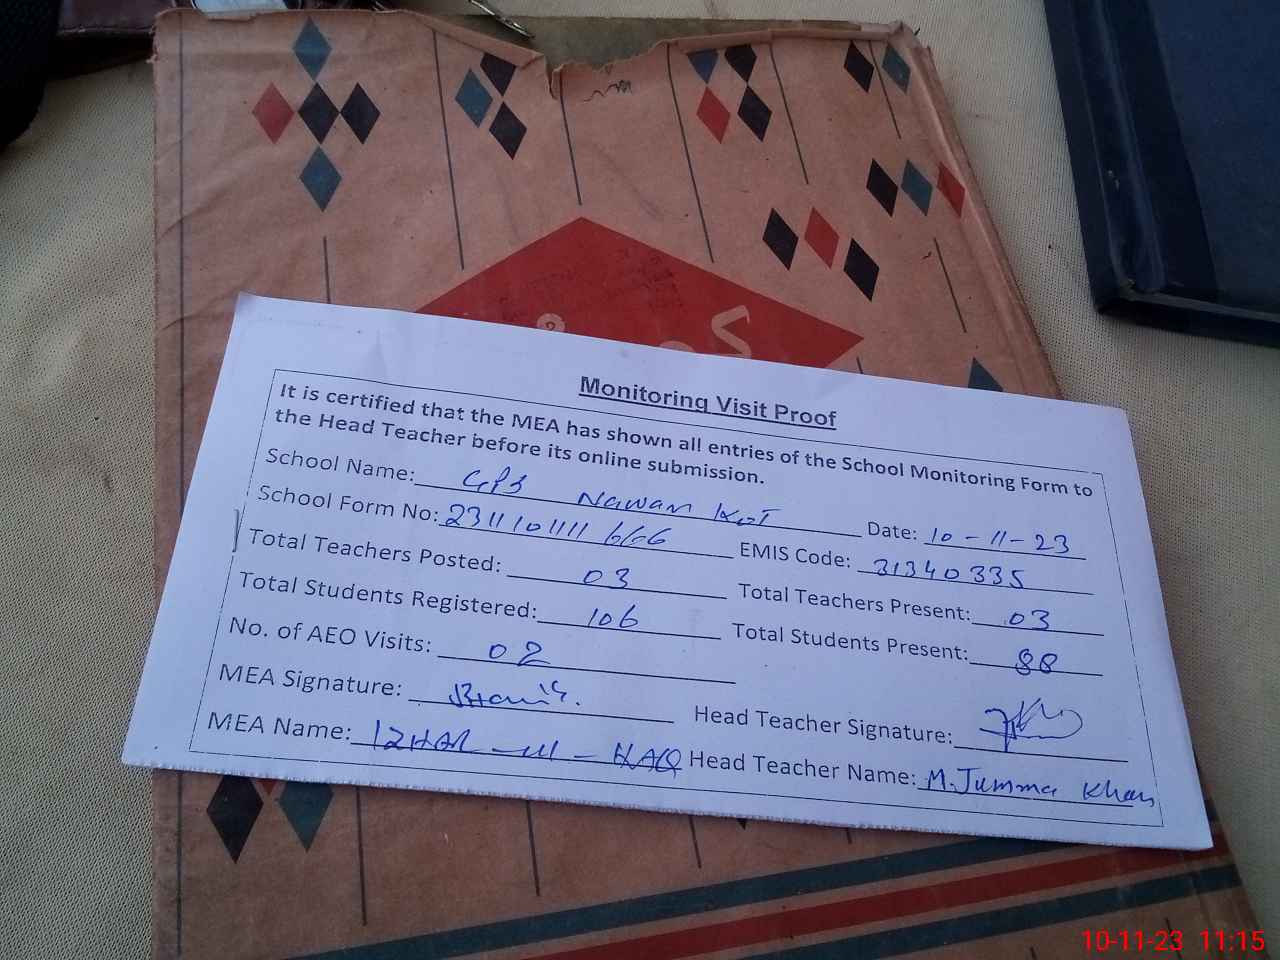 Monitoring Visit Proof
It is certified that the MEA has shown all entries of the School Monitoring Form to
the Head Teacher before its online submission.
School Name: GPS Nawan Kot Date: 10-11-23
School Form No: 2311101111666 EMIS Code: 31340335
Total Teachers Posted: 03 Total Teachers Present: 03
Total Students Registered: 106 Total Students Present: 88
No. of AEO Visits: 02
MEA Signature: Head Teacher Signature:
MEA Name: IZHAR-UL-HAQ Head Teacher Name: M. Jumma Khan
10-11-23 11:15